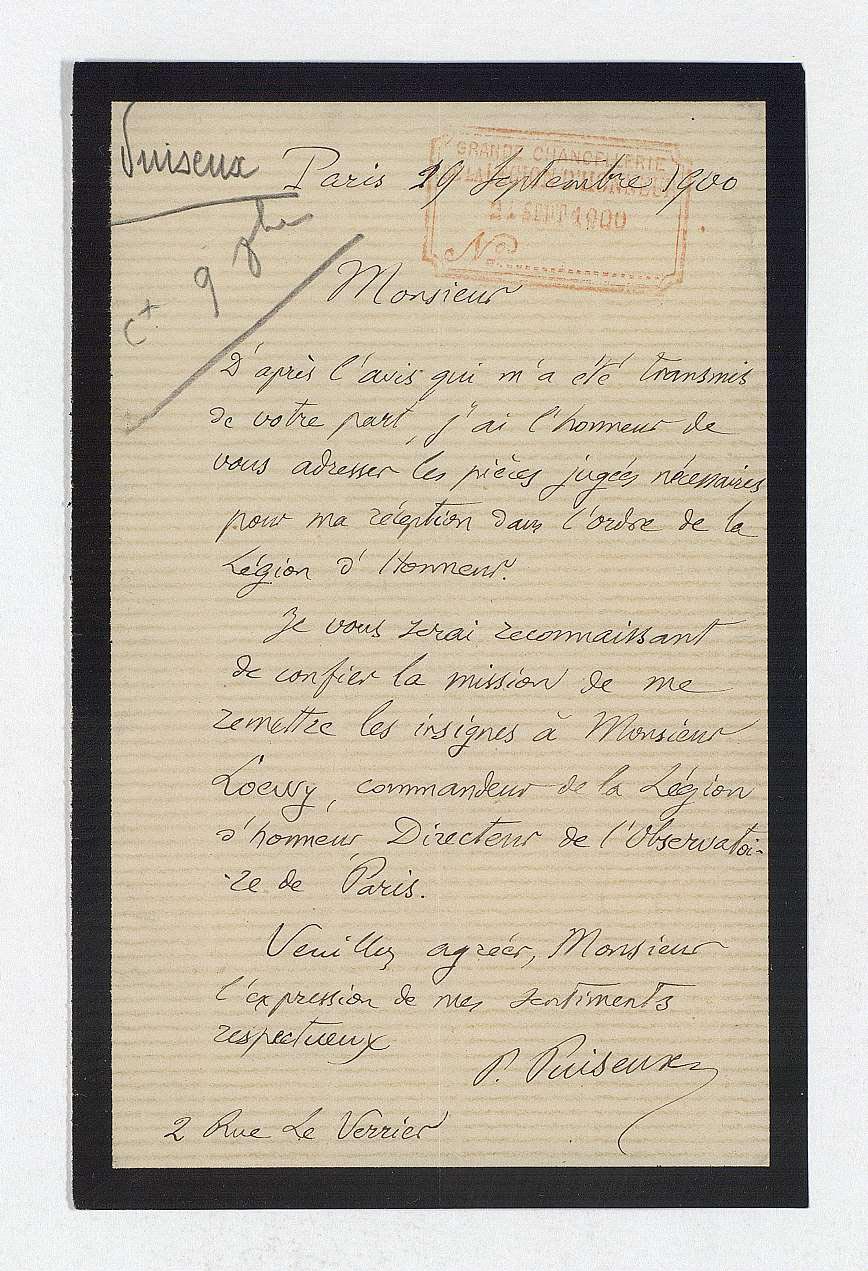 Puiseux
Paris 29 Septembre 1900
GRANDE CHANCELLERIE
SEPT 1900
No
9
Monsieur
D'après l'avis qui m'a été transmis
de votre part, j'ai l'honneur de
vous adresser les pièces jugées nécessaires
pour ma réception dans l'ordre de la
Légion d'Honneur.
Je vous serai reconnaissant
de confier la mission de me
remettre les insignes à Monsieur
Loewy, commandeur de la Légion
d'honneur, Directeur de l'Observatoi-
-re de Paris.
Veuillez agréer, Monsieur
l'expression de mes sentiments
respectueux
P. Puiseux
2 Rue Le Verrier